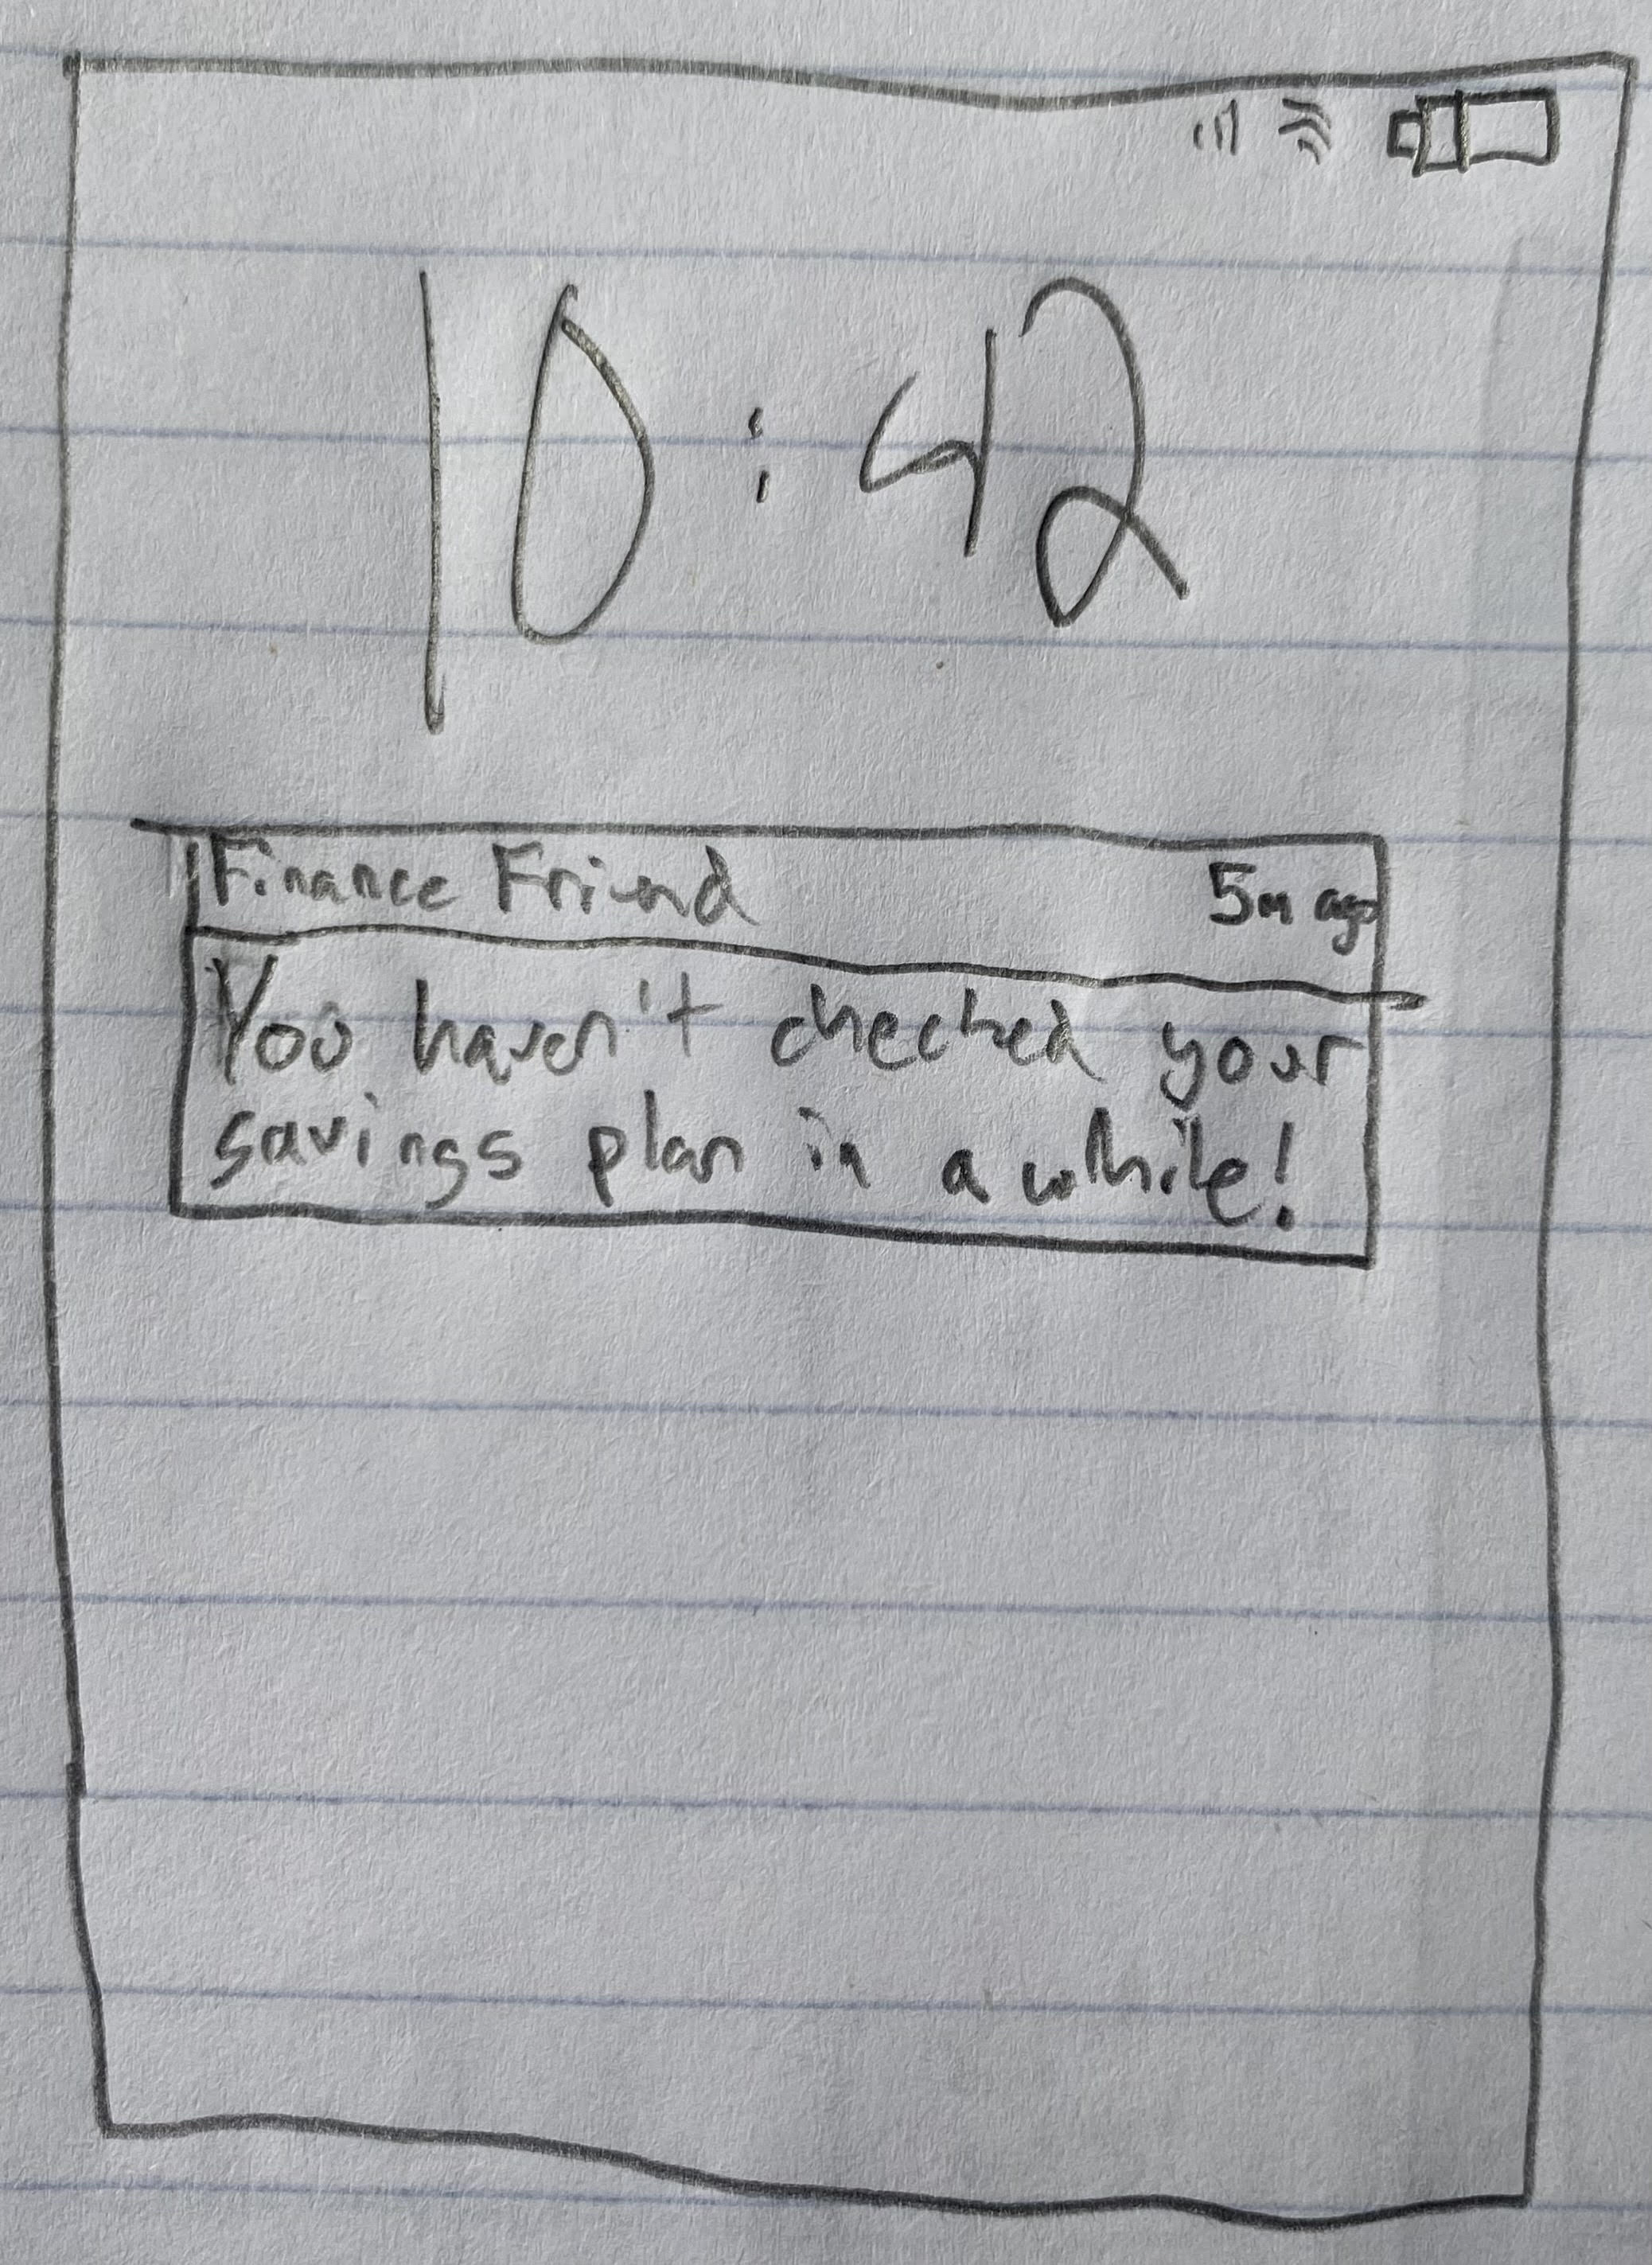 10:42
Finance Friend 5m ago
You haven't checked your
savings plan in a while!